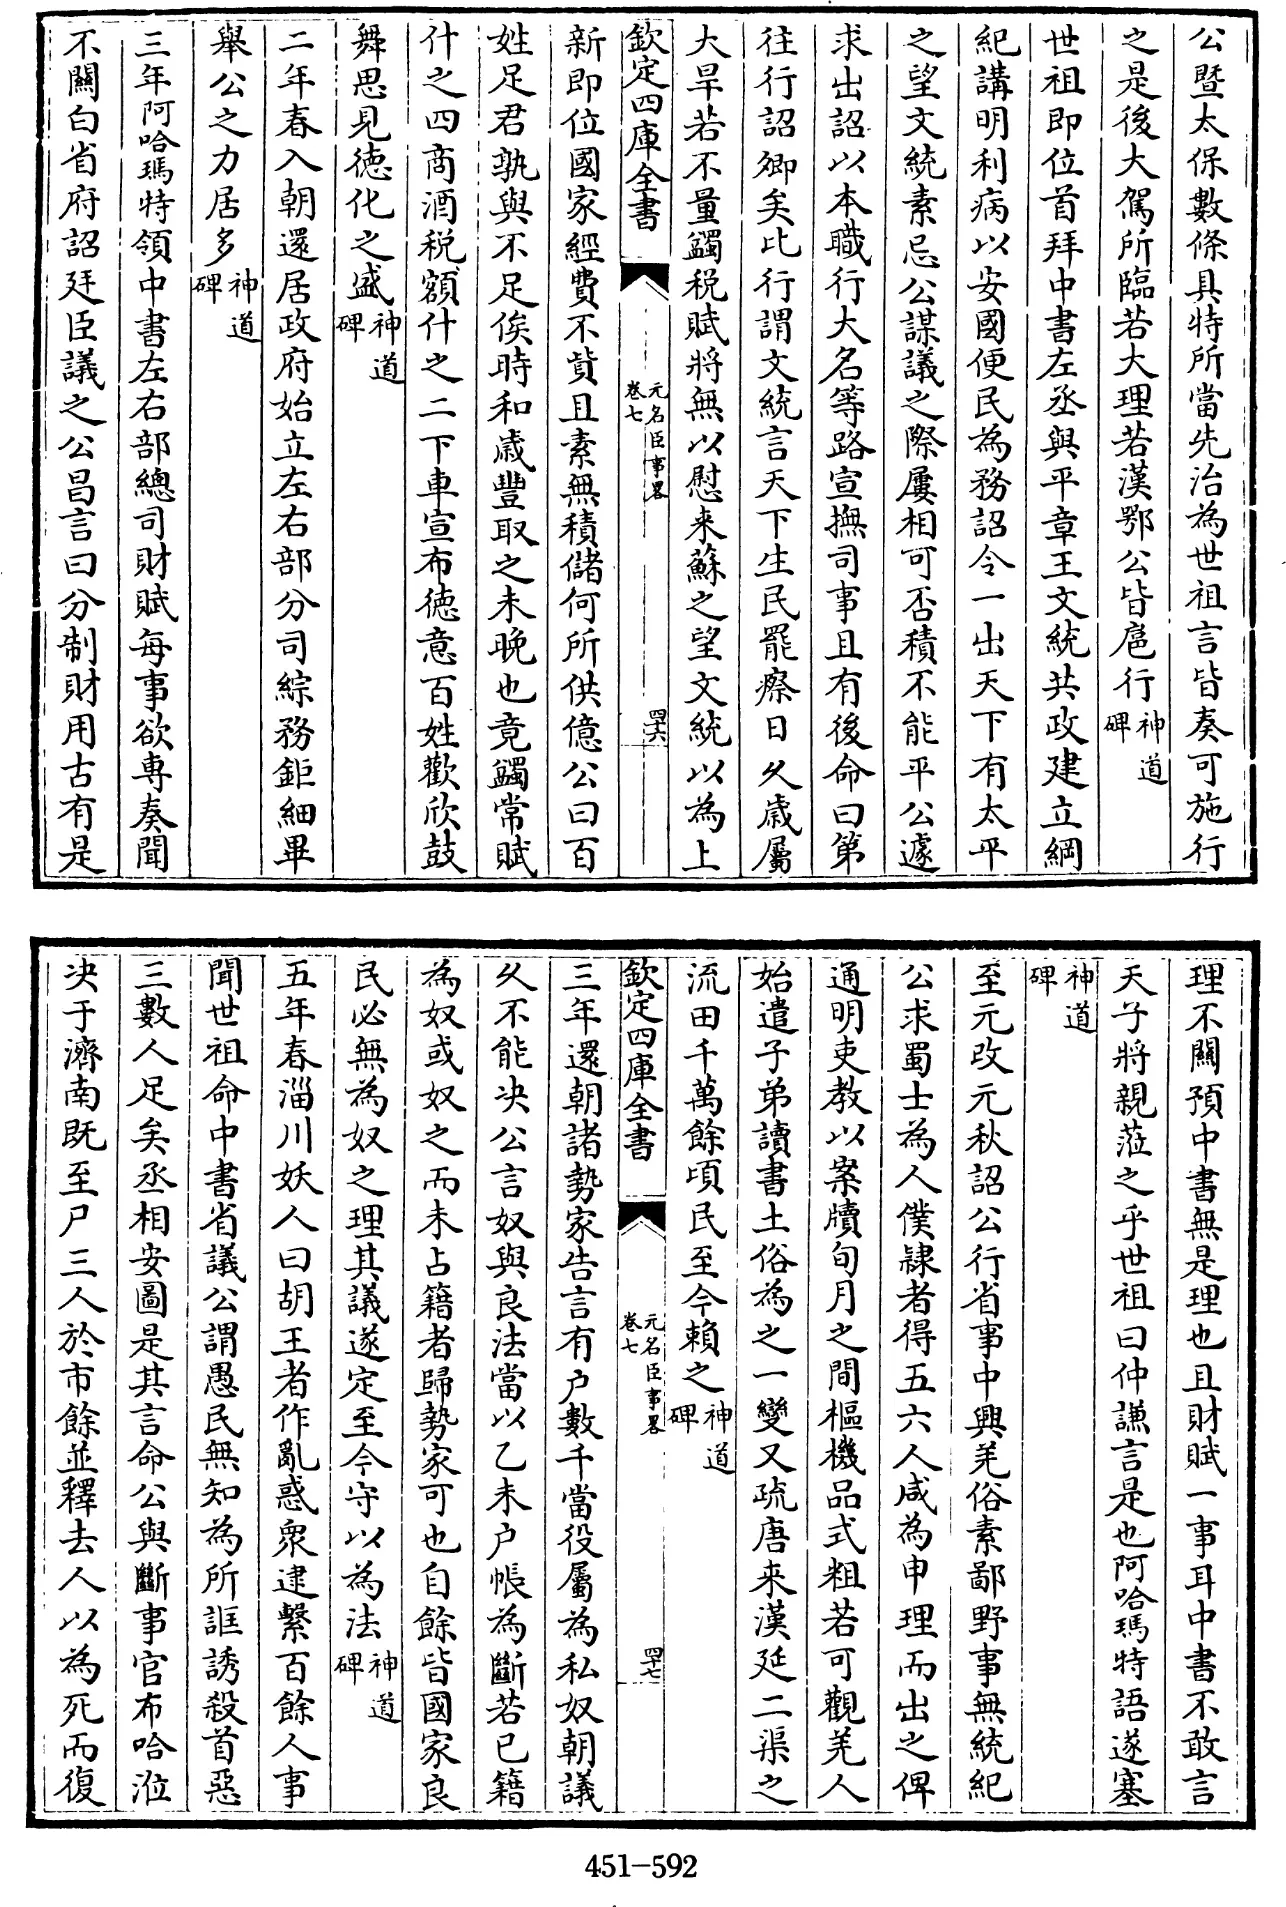 公暨太保數條具特所當先治為世祖言皆奏可施行
之是後大駕所臨若大理若漢鄂公皆扈行神道碑
世祖即位首拜中書左丞與平章王文統共政建立綱
紀講明利病以安國便民為務詔令一出天下有太平
之望文統素忌公謀議之際屢相可否積不能平公遽
求出詔以本職行大名等路宣撫司事且有後命曰第
往行詔卿矣比行謂文統言天下生民罷瘵日久歲屬
大旱若不量蠲税賦將無以慰来蘇之望文統以為上
欽定四庫全書
元名臣事畧
卷七
四十六
新即位國家經費不貲且素無積儲何所供億公曰百
姓足君孰與不足俟時和歲豐取之未晚也竟蠲常賦
什之四商酒税額什之二下車宣布德意百姓歡欣鼓
舞思見德化之盛神道碑
二年春入朝還居政府始立左右部分司綜務鉅細畢
舉公之力居多神道碑
三年阿哈瑪特領中書左右部總司財賦每事欲專奏聞
不關白省府詔廷臣議之公昌言曰分制財用古有是
理不關預中書無是理也且財賦一事耳中書不敢言
天子將親蒞之乎世祖曰仲謙言是也阿哈瑪特語遂塞
神道碑
至元改元秋詔公行省事中興羌俗素鄙野事無統紀
公求蜀士為人僕隸者得五六人咸為申理而出之俾
通明吏教以案牘旬月之間樞機品式粗若可觀羌人
始遣子弟讀書土俗為之一變又疏唐来漢延二渠之
流田千萬餘頃民至今賴之神道碑
欽定四庫全書
元名臣事畧
卷七
四十七
三年還朝諸勢家告言有户數千當役屬為私奴朝議
久不能决公言奴與良法當以乙未户帳為斷若已籍
為奴或奴之而未占籍者歸勢家可也自餘皆國家良
民必無為奴之理其議遂定至今守以為法神道碑
五年春淄川妖人曰胡王者作亂惑衆逮繫百餘人事
聞世祖命中書省議公謂愚民無知為所誆誘殺首惡
三數人足矣丞相安圖是其言命公與斷事官布哈涖
决于濟南既至尸三人於市餘並釋去人以為死而復
451-592